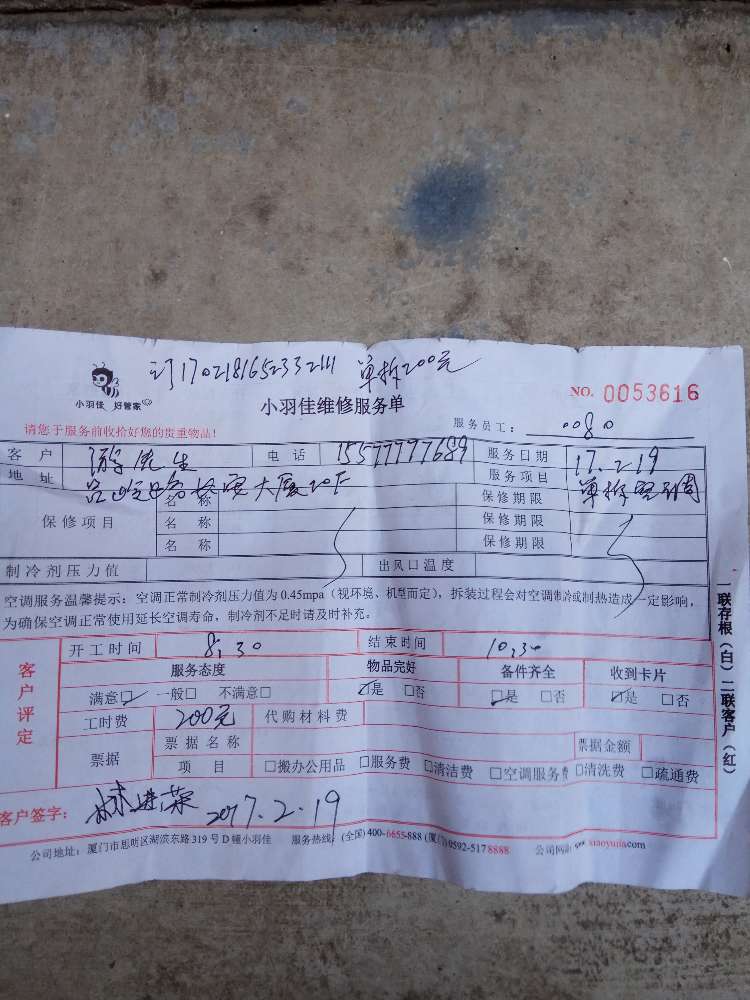 订170218165233211 单拆200元
小羽佳 好管家
小羽佳维修服务单
NO. 0053616
请您于服务前收拾好您的贵重物品！
服务员工： 0080
客户 游先生 电话 15577977689 服务日期 17.2.19
地址 大厦20F 服务项目 单拆空调
保修项目 名称 保修期限
名称 保修期限
名称 保修期限
制冷剂压力值 出风口温度
空调服务温馨提示：空调正常制冷剂压力值为 0.45mpa（视环境、机型而定），拆装过程会对空调制冷或制热造成一定影响，
为确保空调正常使用延长空调寿命，制冷剂不足时请及时补充。
客户评定
开工时间 8:30 结束时间 10:30
服务态度 物品完好 备件齐全 收到卡片
满意☑ 一般□ 不满意□ ☑是 □否 ☑是 □否 ☑是 □否
工时费 200元 代购材料费
票据 票据名称 票据金额
项目 □搬办公用品 □服务费 □清洁费 □空调服务费 □清洗费 □疏通费
客户签字： 林进荣 2017.2.19
公司地址：厦门市思明区湖滨东路 319 号 D 幢小羽佳 服务热线：(全国) 400-6655-888 (厦门) 0592-5178888 公司网站: www.xiaoyujia.com
一联存根（白）二联客户（红）